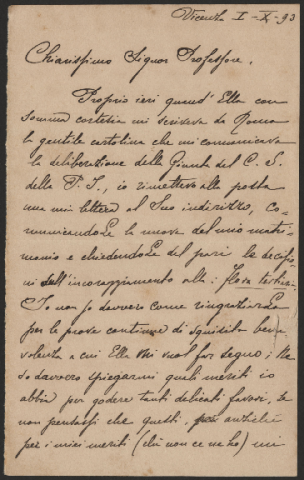 Vicenza I-X-93
Chiarissimo Signor Professore,
Proprio ieri quand' Ella con
somma cortesia mi scriveva da Roma
la gentile cartolina che mi comunicava
la deliberazione della Giunta del C. S.
della P. I., io rimettevo alla posta
una mia lettera al Suo indirizzo, co-
municandoLe la nuova del mio matri-
monio e chiedendoLe del pari la
dell'incoraggiamento alla: flora
Io non so davvero come ringraziarLa
per le prove continue di squisita bene-
volenza a cui Ella mi vuol far segno; Ne
so davvero spiegarmi quali meriti io
abbia per godere tanti delicati favori, se
non pensassi che questi, anziché
per i miei meriti (ché non ce ne ho) mi